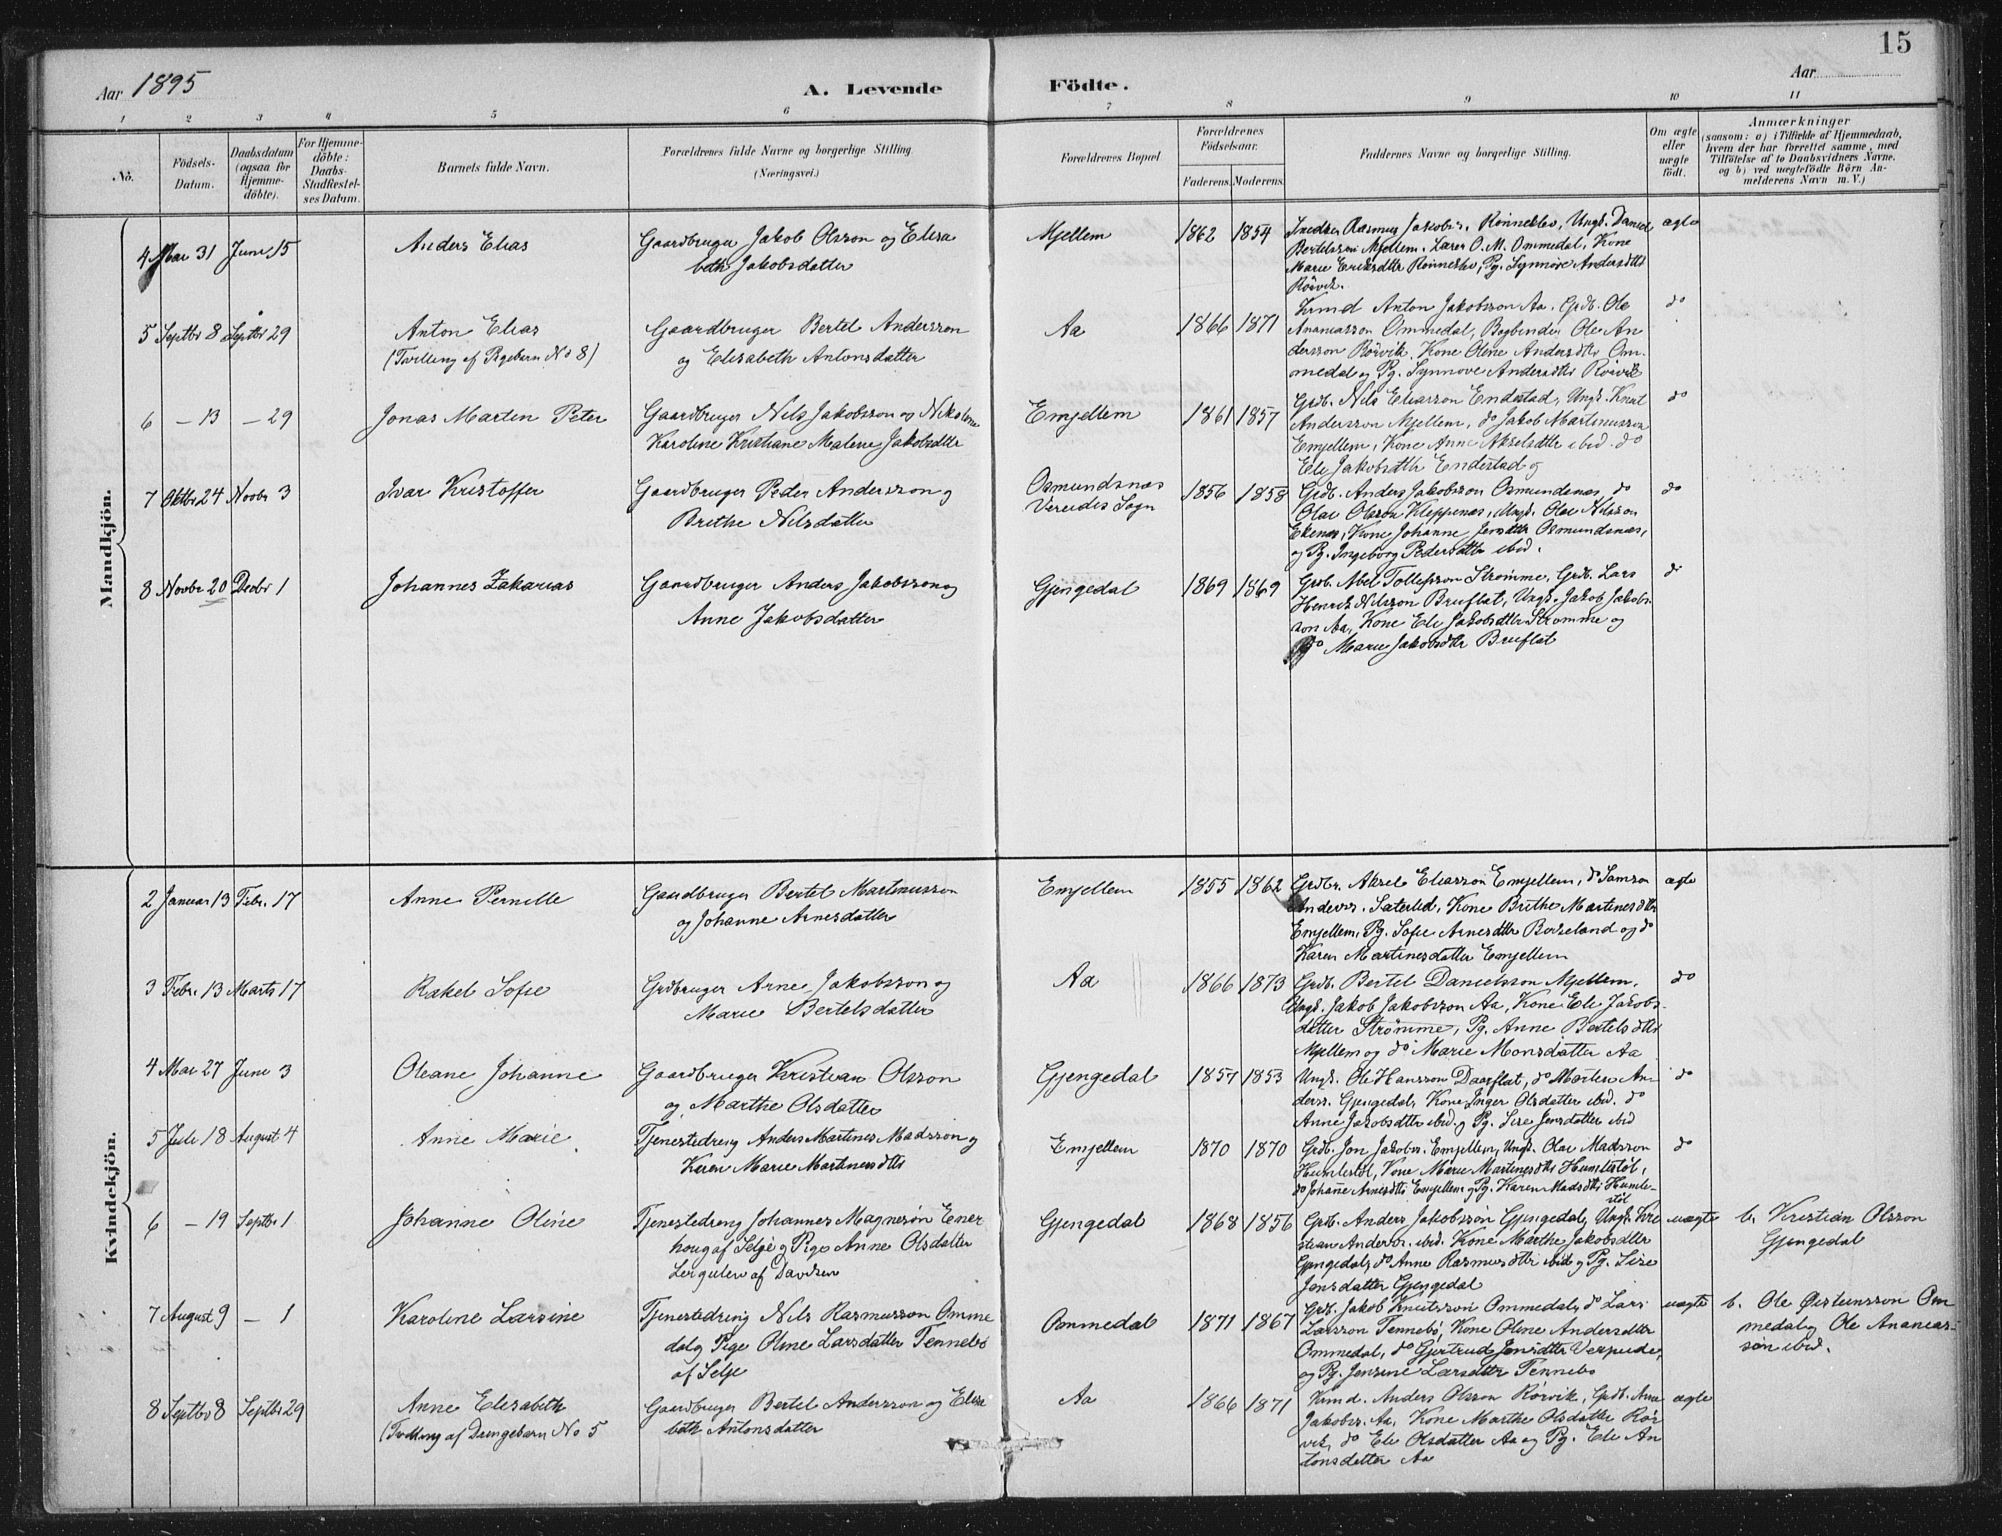 15
Aar 1895
A. Levende Födte.
Aar
1 2 3 4 5 6 7 8 9 10 11
No.
Födsels-Datum.
Daabsdatum (ogsaa for Hjemme-döbte).
For Hjemme-döbte: Daabs-Stadfæstel-ses Datum.
Barnets fulde Navn.
Forældrenes fulde Navne og borgerlige Stilling. (Næringsvei.)
Forældrenes Bopæl
Forældrenes Födselsaar.
Faderens. Moderens.
Faddernes Navne og borgerlige Stilling.
Om ægte eller uægte födt.
Anmærkninger
(saasom: a) i Tilfælde af Hjemmedaab,
hvem der har forrettet samme, med
Tilföielse af to Daabsvidners Navne.
og b) ved uægtefödte Börn An-
melderens Navn m. V.)
Mandkjön.
4 Mai 31 Juni 15
Anders Elias
Gaardbruger Jakob Olsson og Elisa
beth Jakobsdatter
Mjellem
1862 1854
Rasmus Jakobs. Rønneklev, Ungk. Daniel
Bertelsson Mjellem. Lærer O. M. Ommedal, Kone
Marie Eriksdtr Rønneklev, Pg. Synnøve Andersdtr
Rørvik.
ægte
5 Septbr 8 Septbr 29
Anton Elias
(Tvilling af Pigebarn No 8)
Gaardbruger Bertel Andersson
og Elisabeth Antonsdatter
Aa
1866 1871
Krmd Anton Jakobsson Aa. Grdb. Ole
Ananiasson Ommedal, Bogbinder Ole An
dersson Rørvik, Kone Oline Andersdtr Om-
medal og Pg. Synnøve Andersdtr Rørvik
do
6 – 13 – 29
Jonas Martin Peter
Gaardbruger Nils Jakobsson og Nikoline
Karoline Kristiane Malene Jakobsdtr
Emjellem
1861 1857
Grdb. Nils Eliasson Endestad, Ungk. Knut
Andersson Mjellem, do Jakob Martinusson
Emjellem, Kone Anne Akselsdtr ibid. do
Eli Jakobsdtr Endestad og
do
7 Oktbr 24 Novbr 3
Ivar Kristoffer
Gaardbruger Peder Andersson og
Brithe Nilsdatter
Osmundsnæs
Vereidis Sogn
1856 1858
Grdb. Anders Jakobsson Osmundsnæs, do
Olai Olsson Kleppenæs, Ungk. Olai Nilsson
Ekenæs, Kone Johanne Jensdtr Osmundsnæs,
og Pg. Ingeborg Pedersdtr ibid.
do
8 Novbr 20 Decbr 1
Johannes Zakarias
Gaardbruger Anders Jakobsson og
Anne Jakobsdatter
Gjengedal
1869 1869
Grdb. Abel Tollefsson Strømme, Grdb. Lars
Henrik Nilsson Bruflat, Ungk. Jakob Jakobs-
son Aa, Kone Eli Jakobsdtr Strømme og
do Marie Jakobsdtr Bruflat
do
Kvindekjön.
2 Januar 13 Febr. 17
Anne Pernille
Gaardbruger Bertel Martinusson
og Johanne Arnesdatter
Emjellem
1855 1862
Grdbr. Aksel Eliasson Emjellem, do Samson
Anderss. Sæterlid, Kone Brithe Martinesdtr
Emjellem, Pg. Sofie Arnesdtr Berseland og do
Karen Martinesdatter Emjellem
ægte
3 Febr. 13 Marts 17
Rakel Sofie
Grdbruger Arne Jakobsson og
Marie Bertelsdatter
Aa
1866 1873
Grdb. Bertel Danielsson Mjellem,
Ungk. Jakob Jakobsson Aa, Kone Eli Jakobs-
datter Strømme, Pg. Anne Bertelsdtr
Mjellem og do Marie Monsdatter Aa
do
4 Mai 27 Juni 3
Oleane Johanne
Gaardbruger Kristian Olsson
og Marthe Olsdatter
Gjengedal
1857 1853
Ungk. Ole Hansson Daarflat, do Morten An-
derss. Gjengedal, Kone Inger Olsdatter ibid. do
Anne Jakobsdtr ibid. og Pg. Lise Jensdatter ibid
do
5 Juli 18 August 4
Anne Marie
Tjenestedreng Anders Martines Madsson og
Karen Marie Martinesdtr
Emjellem
1870 1870
Grdb. Jon Jakobs. Emjellem, Ungk. Olai Madsson
Humlestøl, Kone Marie Martinesdtr Humlestøl,
do Johanne Arnesdtr Emjellem og Pg. Karen Madsdtr Humle-
støl
do
6 – 19 Septbr 1
Johanne Oline
Tjenestedreng Johannes Magnesøn Ener
houg af Selje og Pige Anne Olsdatter
Lergulen af Daviken
Gjengedal
1868 1856
Grdb. Anders Jakobssøn Gjengedal, Ungk. Kri
stian Anderss. ibid. Kone Marthe Jakobsdtr
Gjengedal, do Anne Rasmusdtr ibid og Pg. Lise
Jensdatter Gjengedal
uægte
b. Kristian Olsson
Gjengedal
7 August 9 – 1
Karoline Larsine
Tjenestedreng Nils Rasmusson Omme
dal og Pige Oline Larsdatter Tennebø
af Selje
Ommedal
1871 1867
Grdb. Jakob Knutsson Ommedal, do Lars
Larsson Tennebø, Kone Oline Andersdtr
Ommedal, do Gjertrud Jensdtr Verpeide,
og Pg. Jensine Larsdtr Tennebø
uægte
b. Ole Øisteinsson Om
medal og Ole Ananias-
søn ibid.
8 Septbr 8 Septbr 29
Anne Elisabeth
(Tvilling af Drengebarn No 5
Gaardbruger Bertel Andersson og Elisa
beth Antonsdatter
Aa
1866 1871
Krmd. Anders Olsson Rørvik, Grdb. Arne
Jakobss. Aa, Kone Marthe Olsdatter Rør
vik, do Eli Olsdatter Aa og Pg. Eli An
tonsdatter Aa
ægte